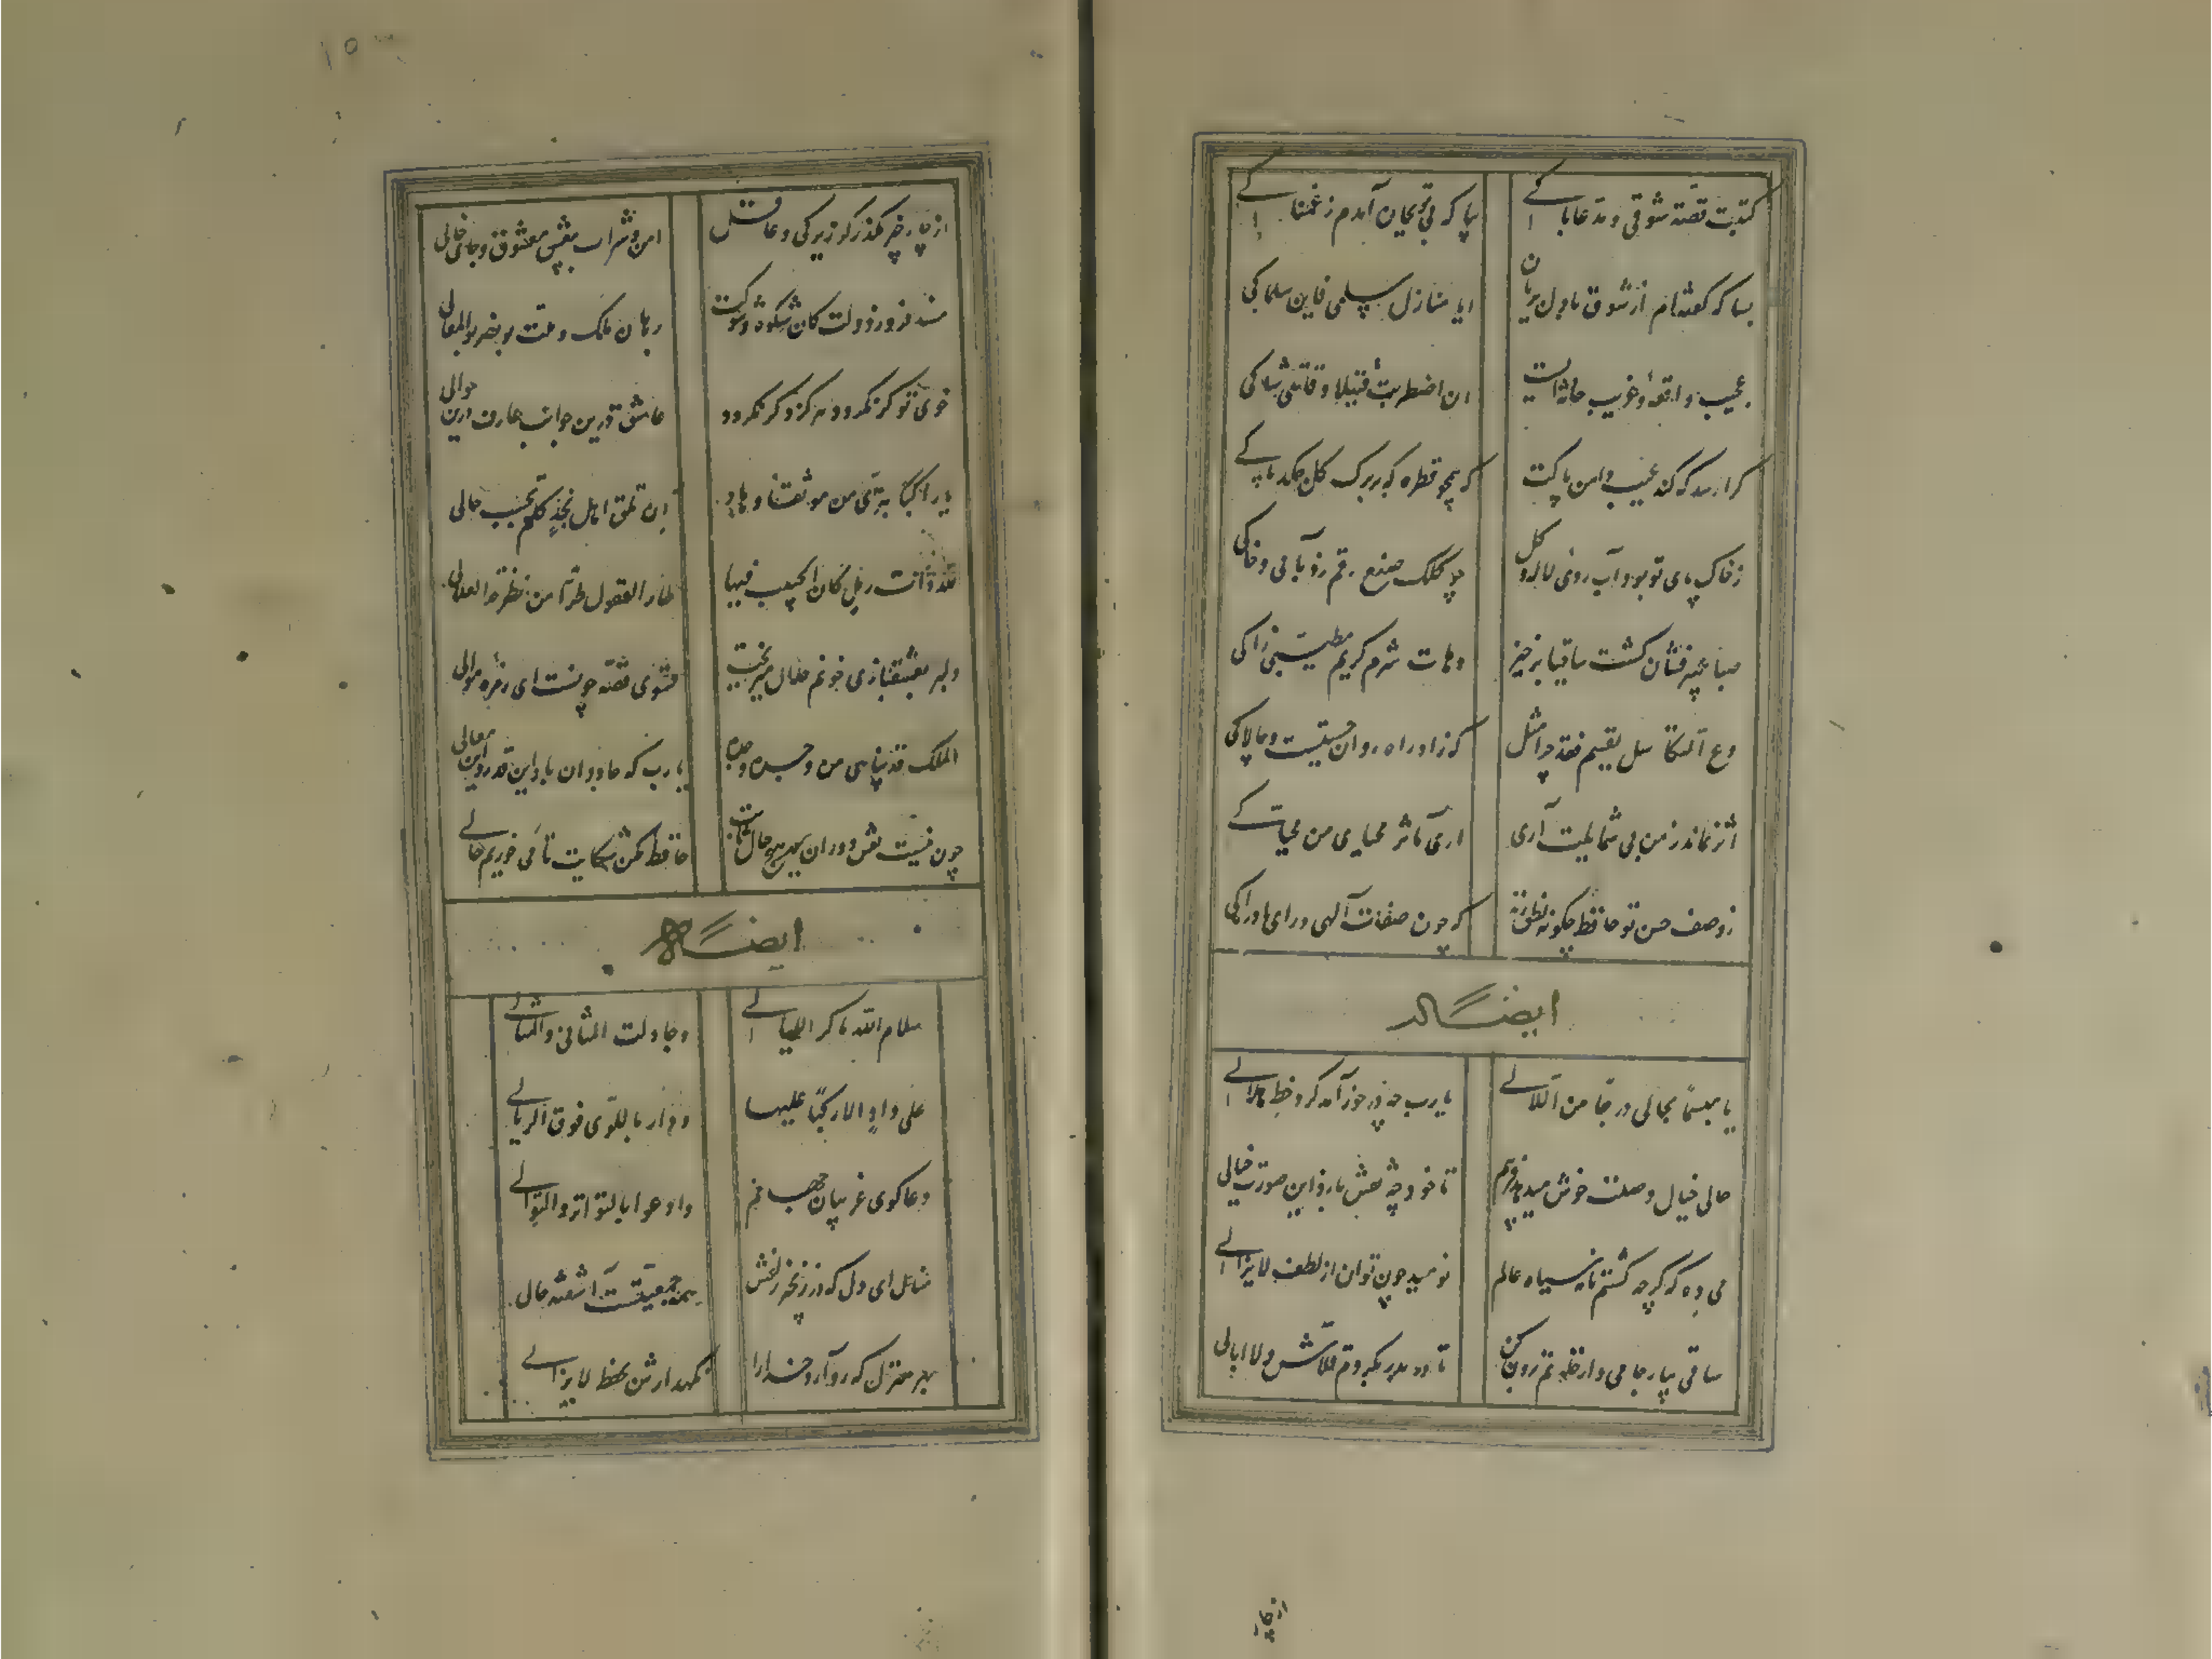 کتبت قصّة شوقی و مدمعی باکی
بیا که بی تو بجان آمدم ز غمناکی
بسا که گفته‌ام از شوق با دل بریان
ایا منازل سلمی فاین سلماکی
عجیب واقعهٔ و غریب حادثه‌ایست
ان اضطربت قتیلا و قاتلی شاکی
کرا رسد که کند عیب دامن پاکت
که همچو قطره که بر برگ گل چکد پاکی
ز خاک پای تو بود آب روی لاله و گل
چو کلک صنع رقم زد بآبی و خاکی
صبا عبیر فشان گشت ساقیا برخیز
وهات شرم کریم مطیّبی زاکی
دع التکاسل یقیم فقد جرا مثل
که زاد راه روان چستیست و چالاکی
اثر نماند ز من بی شمایلت آری
اری مآثر محیای من محیاکی
ز وصف حسن تو حافظ چگونه نطق زند
که چون صفات آلهی ورای ادراکی
ایضاً له
یا مبسماً یحاکی درجاً من اللآلی
یا رب چه در خور آمد گرد خط هلالی
حالی خیال وصلت خوش میدهد فریبم
تا خود چه نقش بازد این صورت خیالی
می ده که گرچه گشتم نامه سیاه عالم
نومید چون توان از لطف لایزالی
ساقی بیار جامی و از خلوتم برون کن
تا در بدر بگردم قلاش و لا ابالی
از چار
از چار چیز مگذر گر زیرکی و عاقل
امن و شراب بیغش معشوق و جای خالی
مسند فروز دولت کان شکوه و شوکت
برهان ملک و ملت بو نصر بوالمعالی
خوی تو گر نگردد هرگز دگر نگردد
عاشق درین جوانب عارف درین حوالی
یا راکبا تبرّی من موثقنا وهادٍ
ان تلق اهل نجدٍ کلم بحسب حالی
قد ذاقت رمل کان الحبیب فیها
طار العقول طراً من نظرة الغزالی
دلبر بعشقبازی خونم حلال میریخت
فتوی قصّه چونست ای زمرهٔ موالی
الملک قد تباهی من وحسن وجده
یا رب که جاودان باد این قدر و این معالی
چون نیست نقش دوران بهیچ حال ثابت
حافظ مکن شکایت تا می خوریم حالی
ایضاً له
سلام الله ماکر اللیالی
وجاوبت المثانی والمثالی
علی وادٍ الاراک ومن علیها
ودار باللوی فوق الرمالی
دعا گوی غریبان جهانم
وادعوا بالتواتر والتوالی
منال ای دل که در زنجیر زلفش
همه جمعیّتست آشفته حالی
بهر منزل که رو آرد خدا را
نگهدارش بحفظ لایزالی